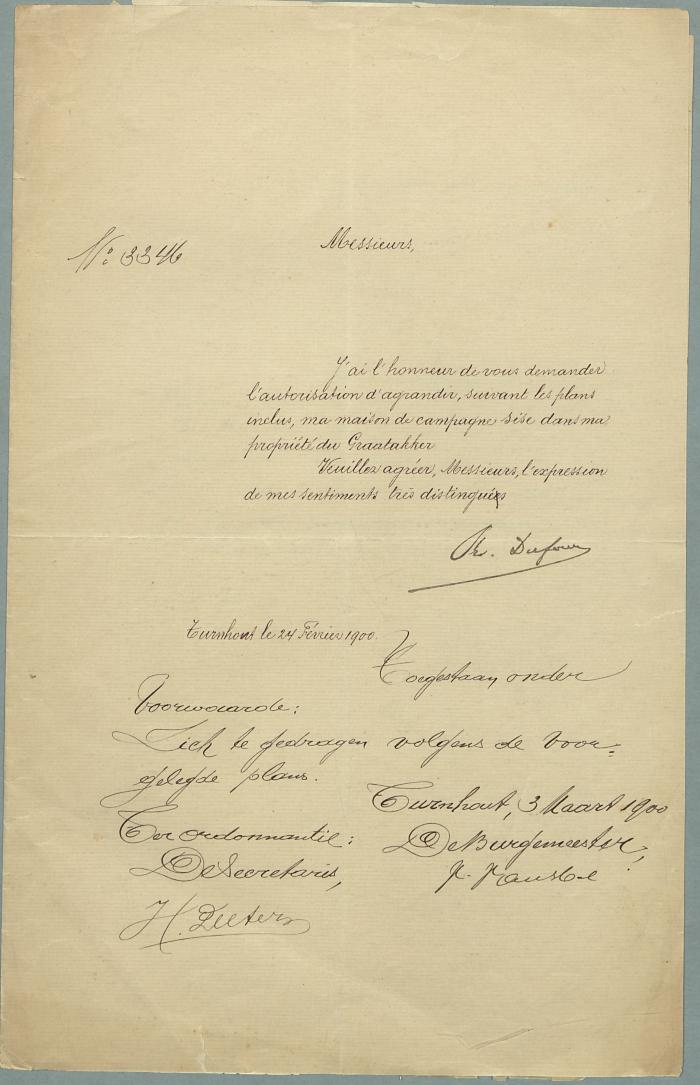 Messieurs,
N° 3346
J'ai l'honneur de vous demander
l'autorisation d'agrandir, suivant les plans
inclus, ma maison de campagne sise dans ma
propriété du Graatakker
Veuillez agréer, Messieurs, l'expression
de mes sentiments très distingués
Dufour
Turnhout le 24 Février 1900.
Toegestaan onder
Voorwaarde:
Zich te gedragen volgens de voor-
gelegde plans.
Turnhout, 3 Maart 1900
Ter ordonnantie:
De Burgemeester,
De Secretaris,
H. Peeters